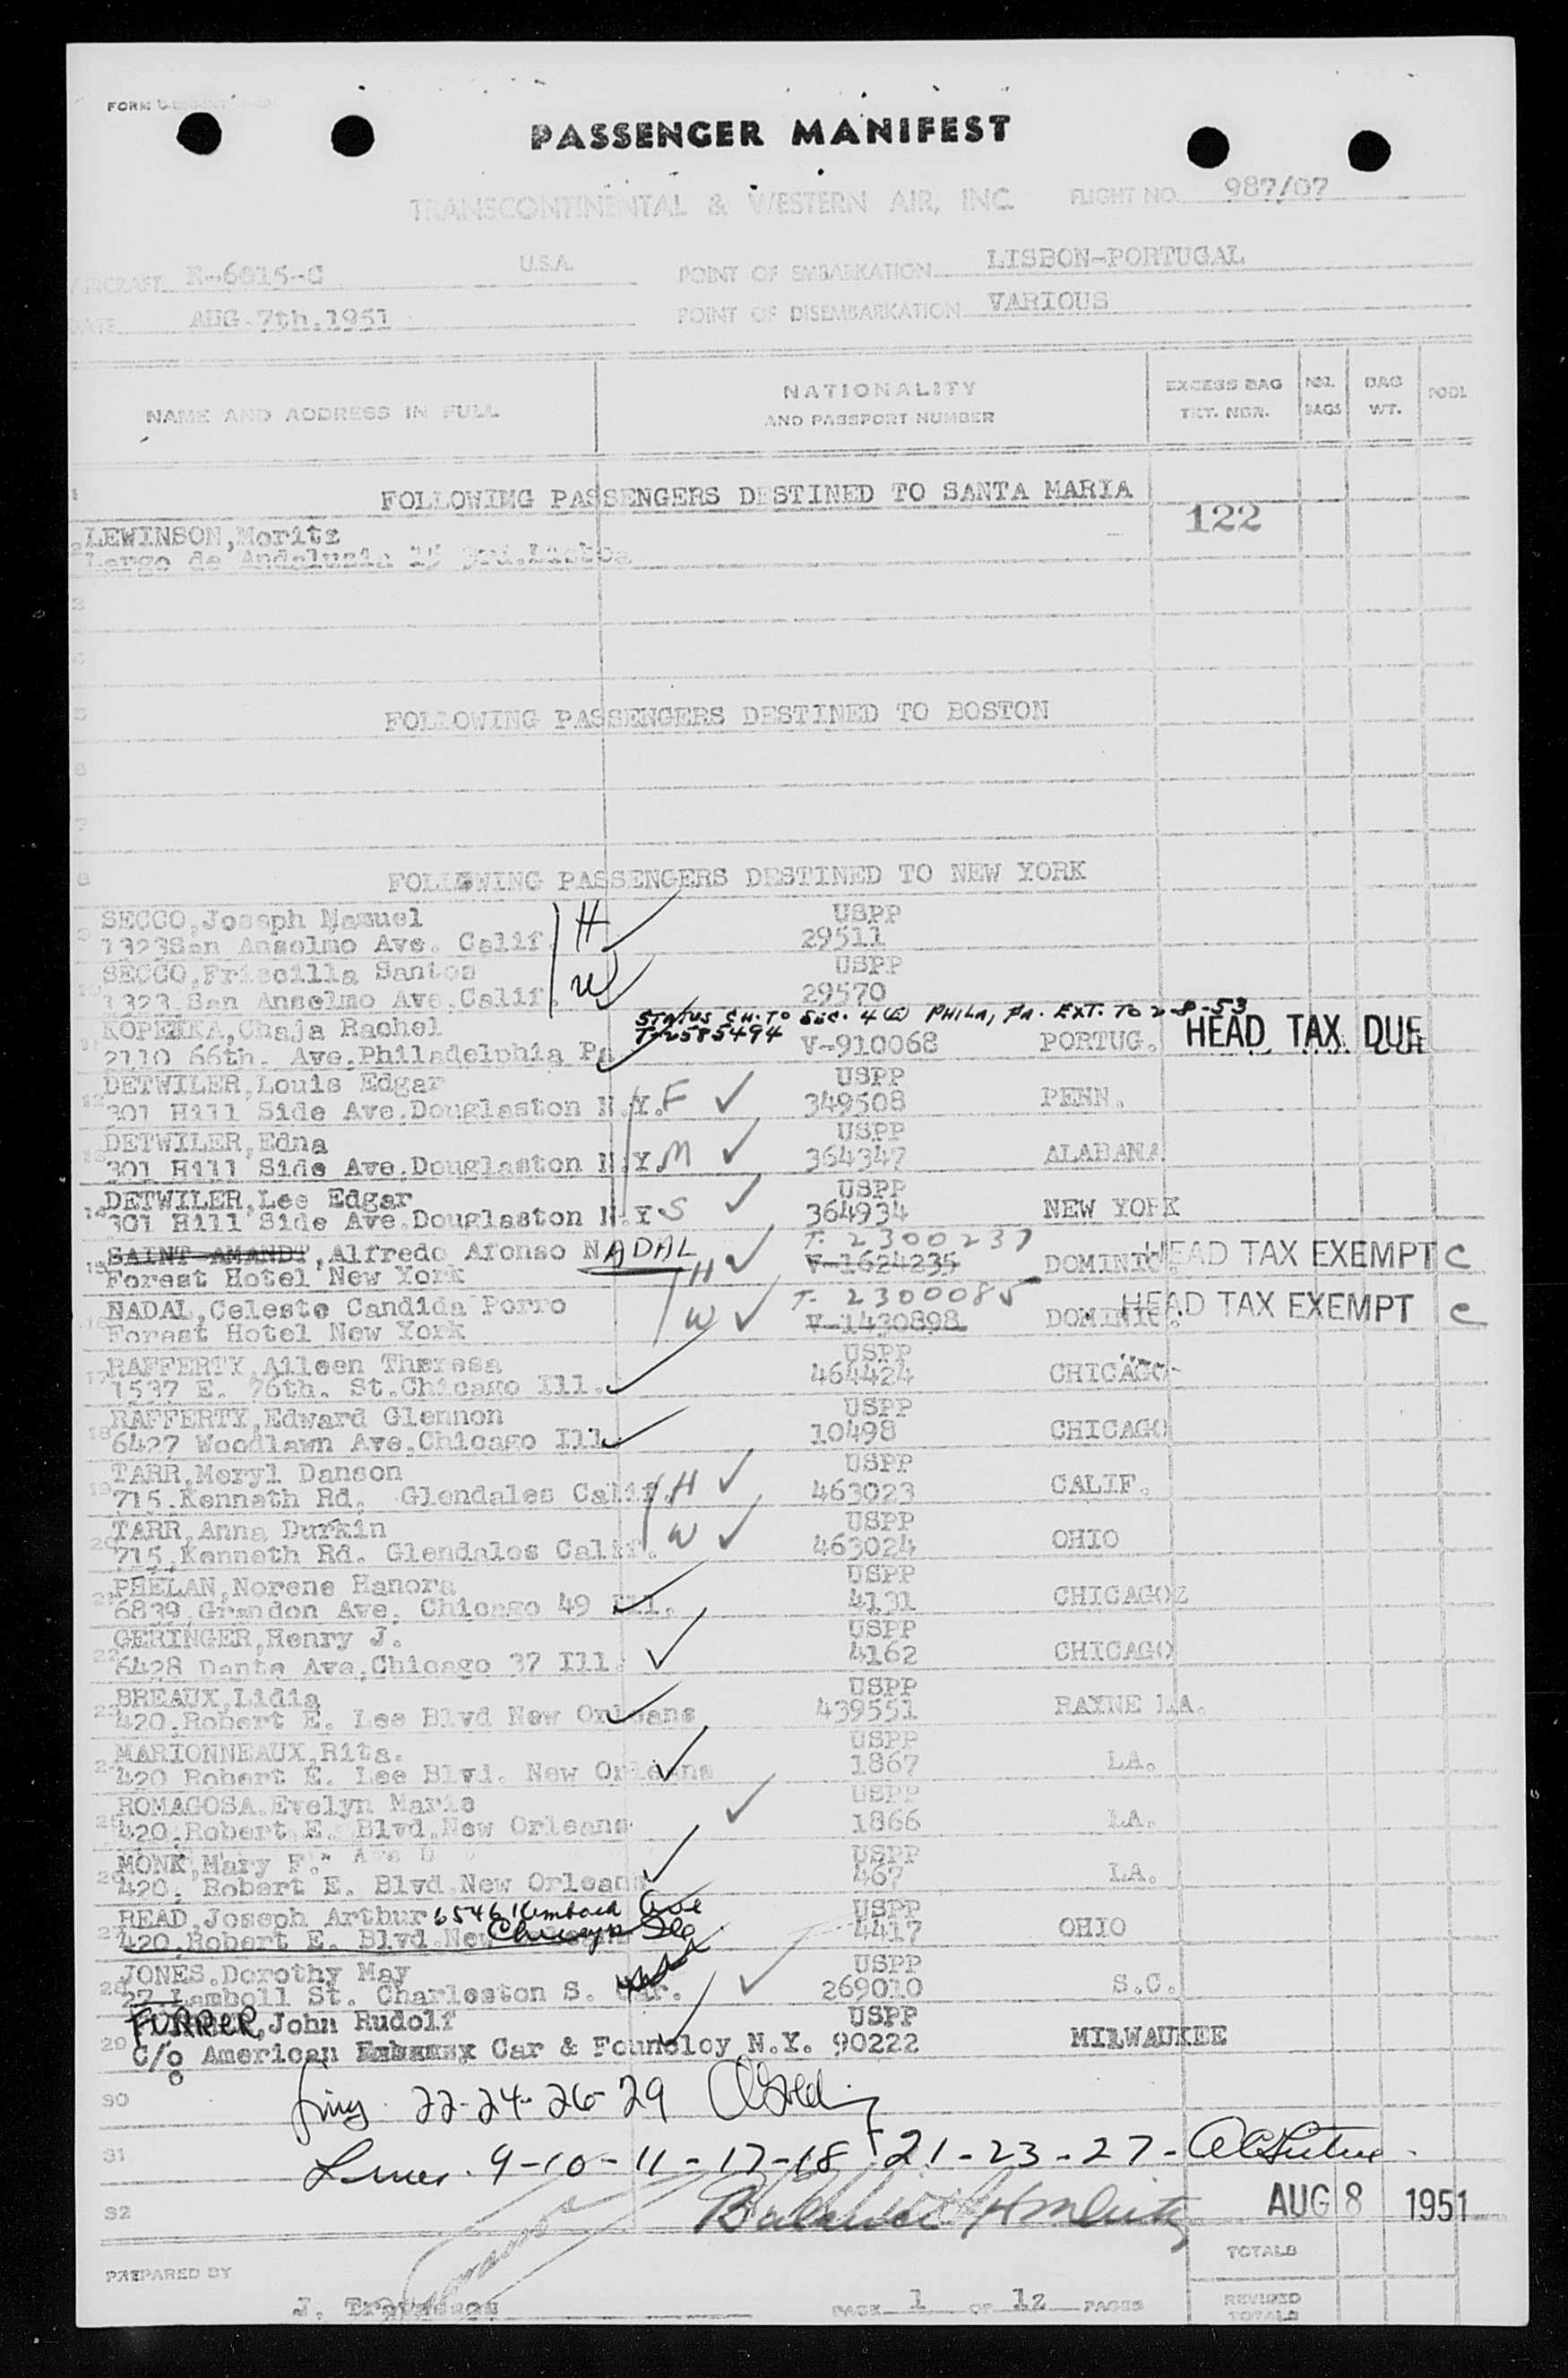 PASSENGER MANIFEST
TRANSCONTINENTAL & WESTERN AIR, INC. FLIGHT NO. 987/07
AIRCRAFT N-6015-C U.S.A. POINT OF EMBARKATION LISBON-PORTUGAL
DATE AUG. 7th, 1951 POINT OF DISEMBARKATION VARIOUS
NAME AND ADDRESS IN FULL NATIONALITY AND PASSPORT NUMBER EXCESS BAG TKT. NBR. NBR. BAGS BAG WT. POOL
1 FOLLOWING PASSENGERS DESTINED TO SANTA MARIA
122
LEWINSON, Moritz
2 Largo de Andaluzia 15 3rd. Lisboa
3
4
5 FOLLOWING PASSENGERS DESTINED TO BOSTON
6
7
8 FOLLOWING PASSENGERS DESTINED TO NEW YORK
SECCO, Joseph Mamuel H USPP
9 1323San Anselmo Ave. Calif. 29511
SECCO, Priscilla Santos W USPP
10 1323 San Anselmo Ave. Calif. 29570
STATUS CH. TO SEC. 4(E) PHILA, PA. EXT. TO 2-8-53
KOPEIKA, Chaja Rachel T-2585494 HEAD TAX DUE
11 2110 66th. Ave. Philadelphia Pa V-910068 PORTUG.
DETWILER, Louis Edgar USPP
12 301 Hill Side Ave. Douglaston N.Y. F 349508 PENN.
DETWILER, Edna USPP
13 301 Hill Side Ave. Douglaston N.Y. M 364347 ALABANA
DETWILER, Lee Edgar USPP
14 301 Hill Side Ave. Douglaston N.Y. S 364934 NEW YORK
SAINT AMANDT, Alfredo Afonso NADAL T- 2300237
15 Forest Hotel New York H V-1624235 DOMINIC. HEAD TAX EXEMPT C
NADAL, Celeste Candida Porro T- 2300085
16 Forest Hotel New York W V-1430898 DOMINIC. HEAD TAX EXEMPT C
RAFFERTY, Aileen Theresa USPP
17 1537 E. 76th. St. Chicago Ill. 464424 CHICAGO
RAFFERTY, Edward Glennon USPP
18 6427 Woodlawn Ave. Chicago Ill 10498 CHICAGO
TARR, Meryl Danson USPP
19 715. Kennath Rd. Glendales Calif. H 463023 CALIF.
TARR, Anna Durkin USPP
20 715. Kenneth Rd. Glendales Calif. W 463024 OHIO
PHELAN, Norene Hanora USPP
21 6839. Grandon Ave. Chicago 49 Ill. 4131 CHICAGOZ
GERINGER, Henry J. USPP
22 6428 Dante Ave. Chicago 37 Ill. 4162 CHICAGO
BREAUX, Lidia USPP
23 420. Robert E. Lee Blvd New Orleans 439551 RAYNE LA.
MARIONNEAUX, Rita. USPP
24 420 Robert E. Lee Blvd. New Orleans 1867 LA.
ROMAGOSA, Evelyn Marie USPP
25 420. Robert E. Blvd. New Orleans 1866 LA.
MONK, Mary F. USPP
26 420. Robert E. Blvd. New Orleans 467 LA.
READ, Joseph Arthur 6546 Kimbark Ave USPP
27 420. Robert E. Blvd. New Chicago Ill 4417 OHIO
JONES, Dorothy May USPP
28 27. Lamboll St. Charleston S. Car. 269010 S.C.
FURRER, John Rudolf USPP
29 C/o American Embassy Car & Foundloy N.Y. 90222 MILWAUKEE
30 22-24-26-29
31 9-10-11-17-18-21-23-27-
32 AUG 8 1951
TOTALS
PREPARED BY
J. Travassos PAGE 1 OF 12 PAGES REVISED TOTALS